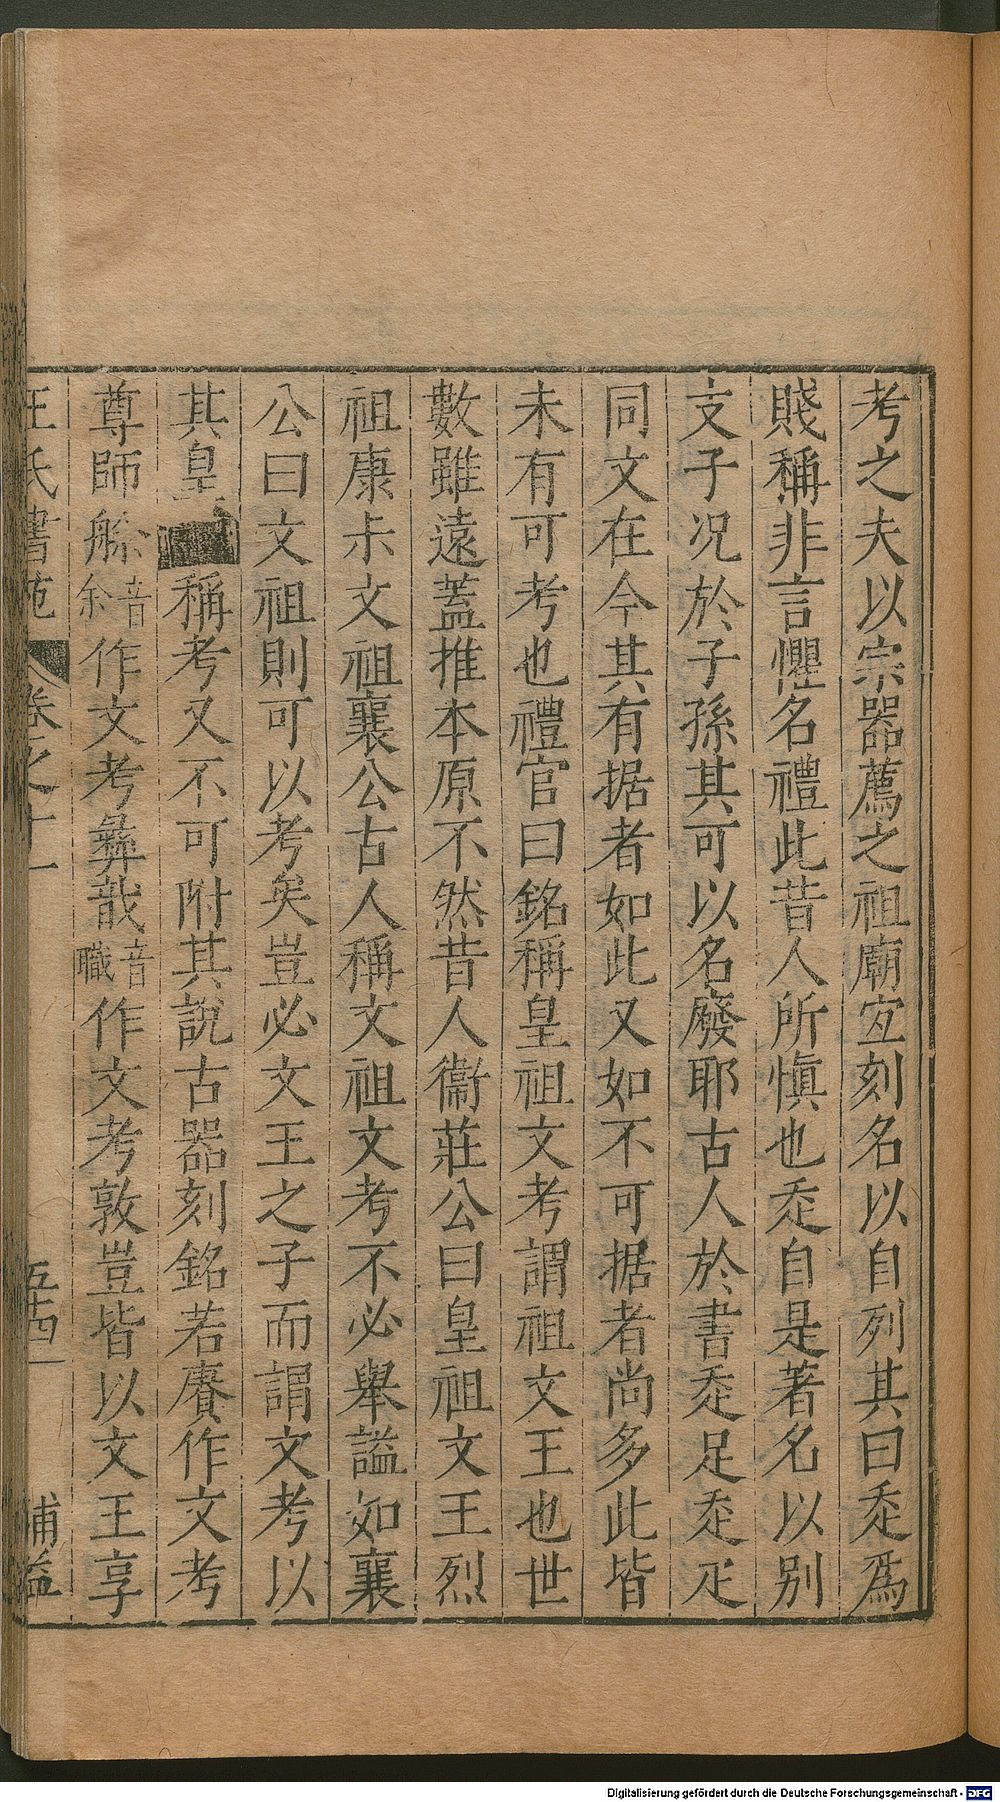 考之夫以宗器薦之祖廟宐刻名以自列其曰㐬爲
賤稱非言懼名禮此昔人所慎也㐬自是著名以別
文子况於子孫其可以名廢耶古人於書㐬足㐬疋
同文在今其有据者如此又如不可据者尚多此皆
未有可考也禮官曰銘稱皇祖文考謂祖文王也世
數雖遠蓋推本原不然昔人衞莊公曰皇祖文王烈
祖康尗文祖襄公古人稱文祖文考不必舉謚如襄
公曰文祖則可以考矣豈必文王之子而謂文考以
其皇稱考又不可附其說古器刻銘若賡作文考
尊師艅音余作文考彝戠音職作文考敦豈皆以文王享
王氏書苑 卷之十一 五十四 補益
Digitalisierung gefördert durch die Deutsche Forschungsgemeinschaft - DFG